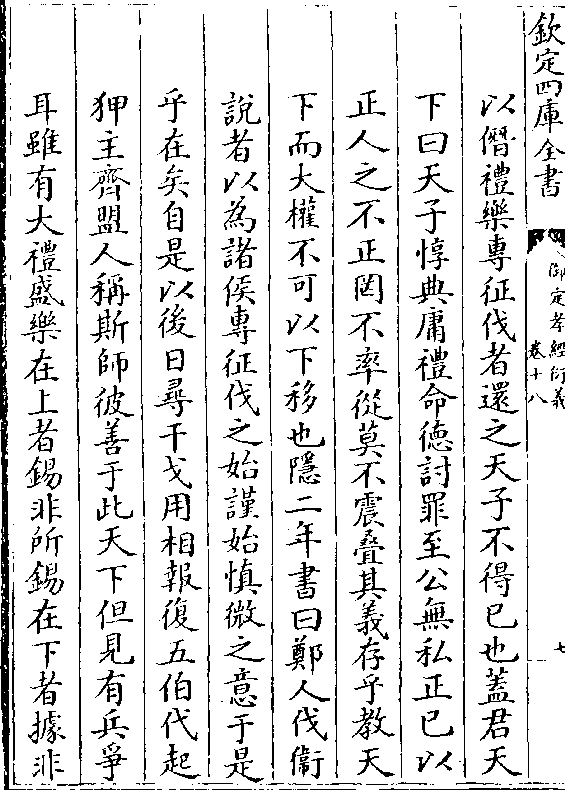 欽定四庫全書
御定孝經衍義
卷十八
七
以僭禮樂專征伐者還之天子不得已也蓋君天
下曰天子惇典庸禮命德討罪至公無私正已以
正人之不正罔不率從莫不震疊其義存乎教天
下而大權不可以下移也隱二年書曰鄭人伐衞
說者以為諸侯專征伐之始謹始慎微之意于是
乎在矣自是以後日尋干戈用相報復五伯代起
狎主齊盟人稱斯師彼善于此天下但見有兵爭
耳雖有大禮盛樂在上者錫非所錫在下者據非